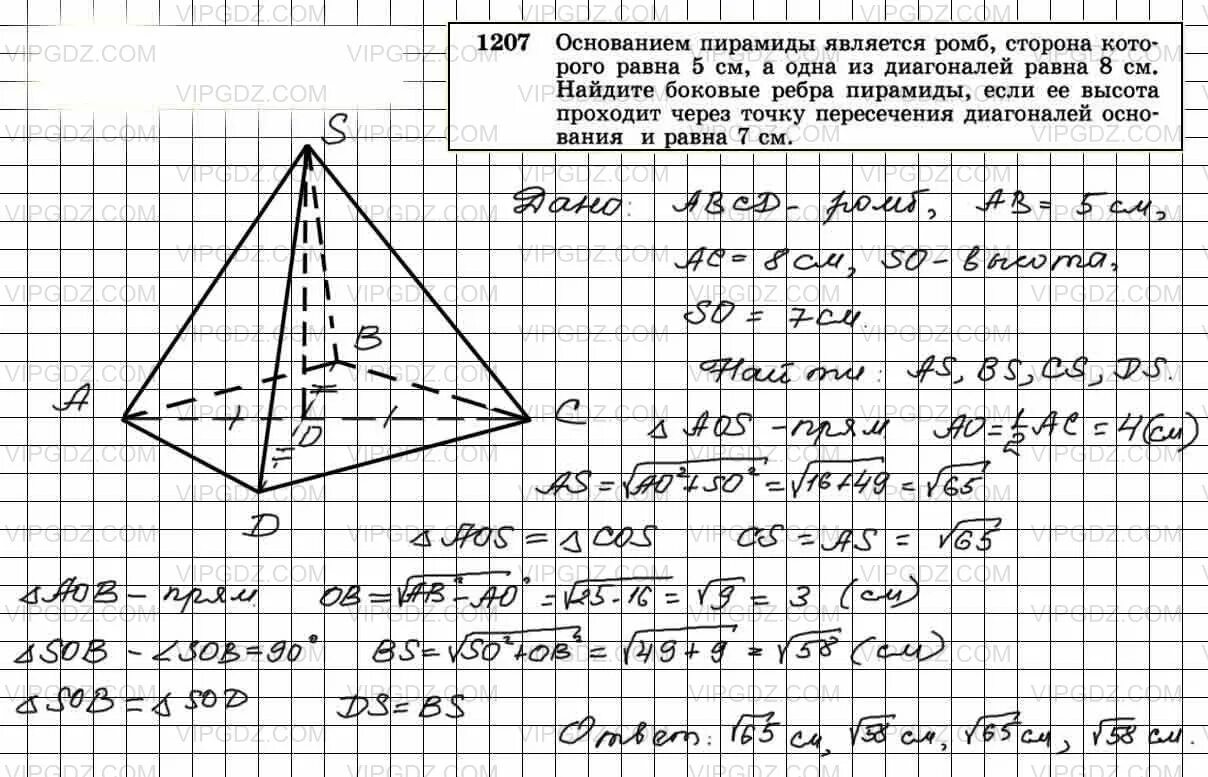 1207 Основанием пирамиды является ромб, сторона кото-
рого равна 5 см, а одна из диагоналей равна 8 см.
Найдите боковые ребра пирамиды, если ее высота
проходит через точку пересечения диагоналей осно-
вания и равна 7 см.
S
Дано: ABCD - ромб, AB = 5 см,
AC = 8 см, SO - высота,
SO = 7 см.
B
Найти: AS, BS, CS, DS.
A
C
O
△ AOS - прям AO = 1/2 AC = 4 (см)
AS = √AO² + SO² = √16 + 49 = √65
D
△ AOS = △ COS CS = AS = √65
△ AOB - прям. OB = √AB² - AO² = √25 - 16 = √9 = 3 (см)
△ SOB - ∠SOB = 90° BS = √SO² + OB² = √49 + 9 = √58 (см)
△ SOB = △ SOD DS = BS
Ответ: √65 см, √58 см, √65 см, √58 см.
VIPGDZ.COM